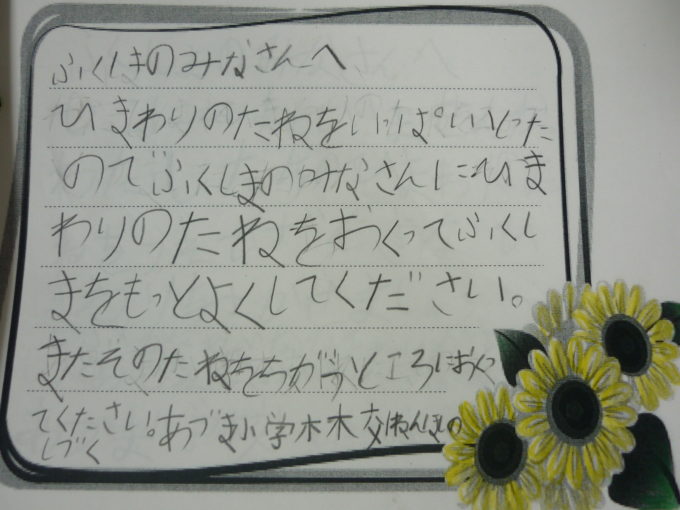 ふくしまのみなさんへ
ひまわりのたねをいっぱいとった
のでふくしまのみなさんにひま
わりのたねをおくってふくし
まをもっとよくしてください。
またそのたねをちがうところにおくっ
てください。あづま小学校ねんほの
しづく